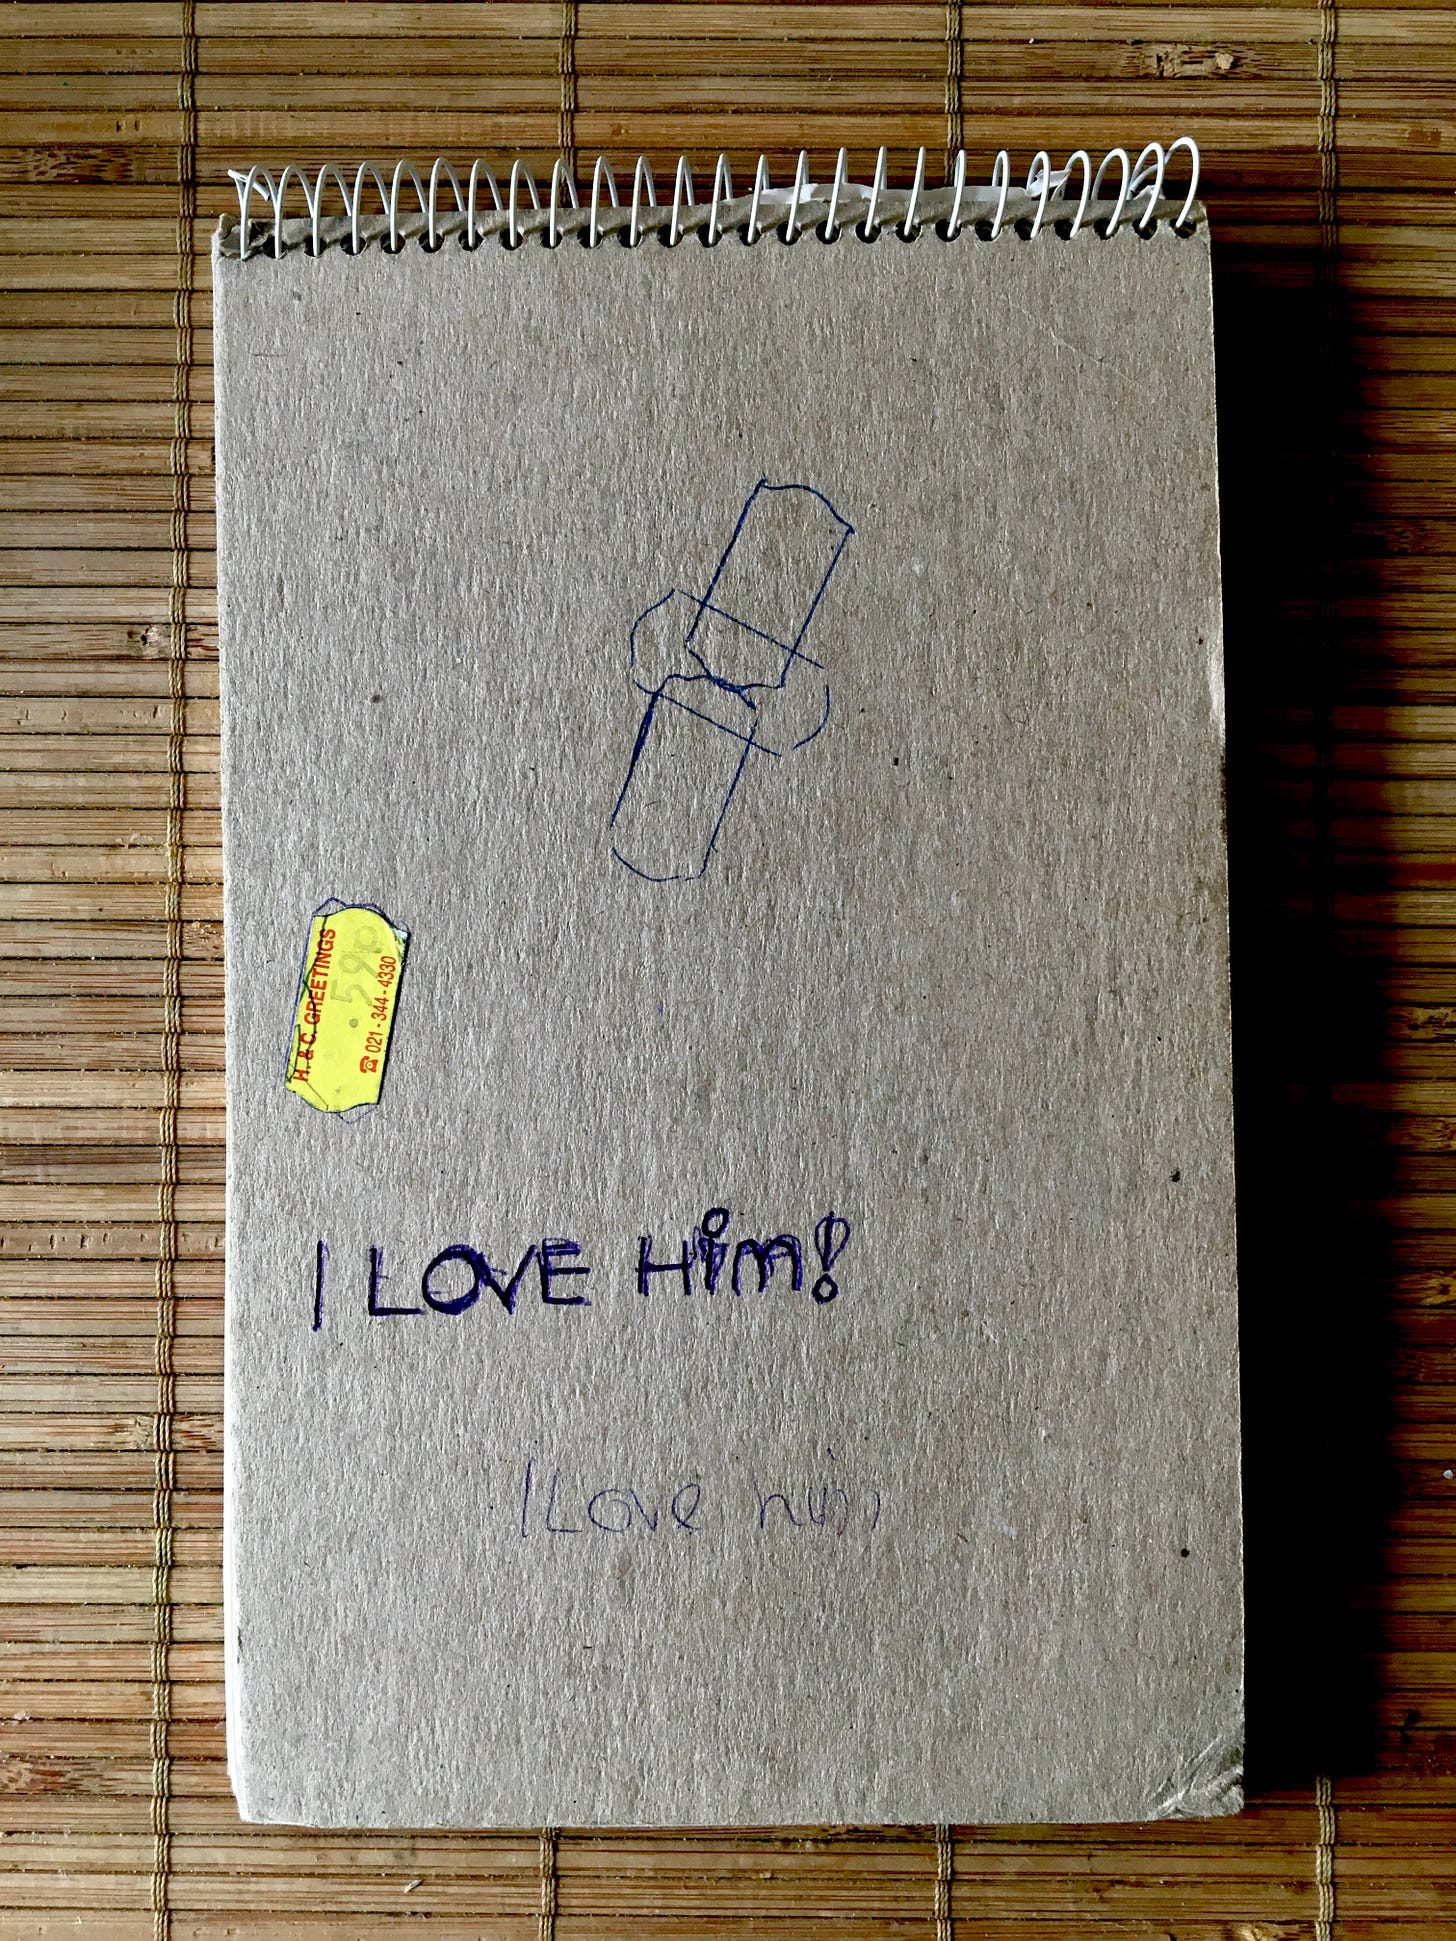 H. & C. GREETINGS
. 59p
☎ 021 - 344 - 4330
I LOVE Him!
I Love him